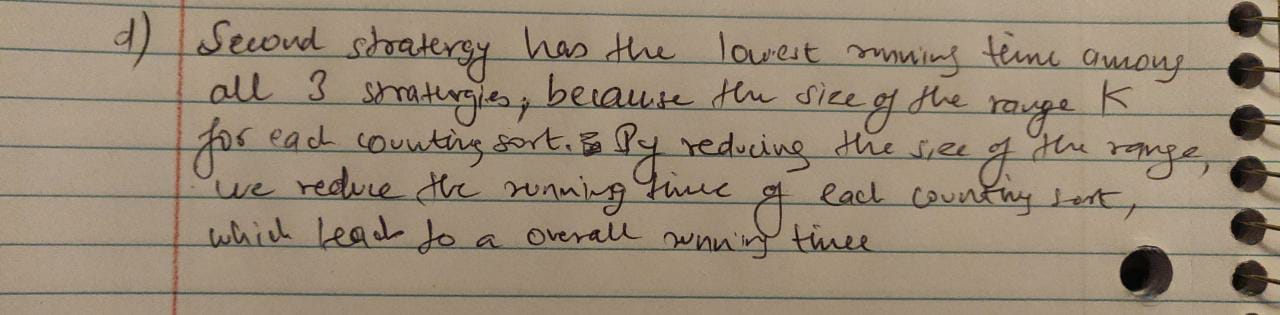 d) Second stratergy has the lowest running time among
all 3 straturgies, because the size of the range K
for each counting sort. By reducing the size of the range,
we reduce the running time of each counting sort,
which lead to a overall running time